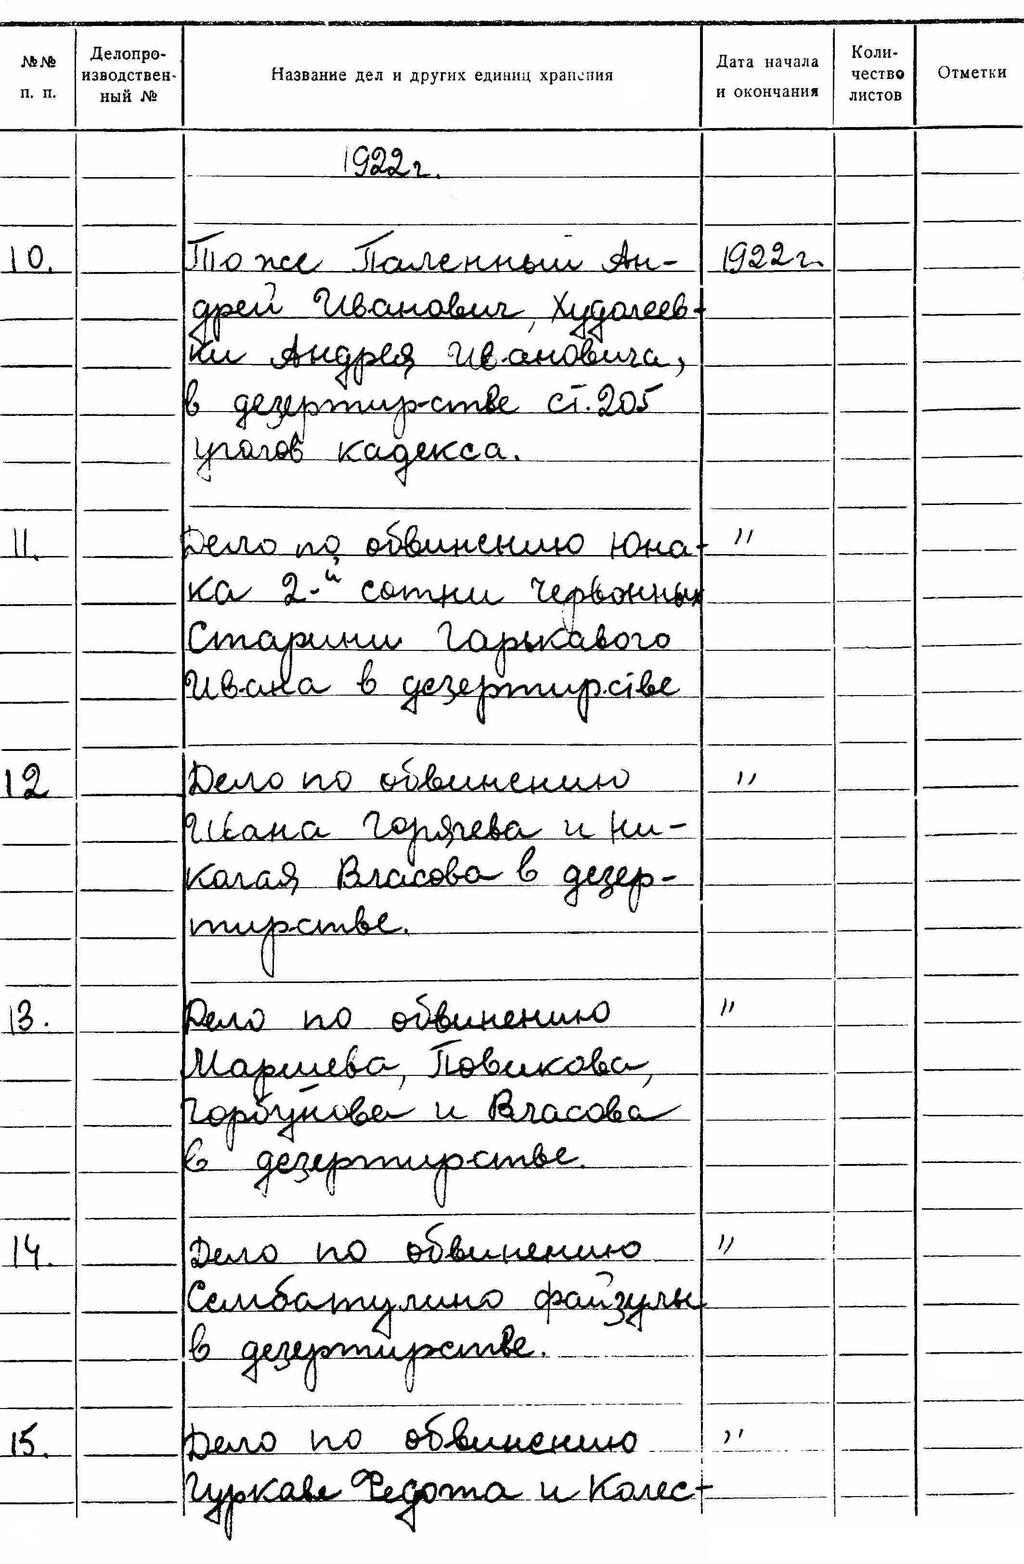 №№ п. п.
Делопро-изводствен-ный №
Название дел и других единиц хранения
Дата начала и окончания
Коли-чество листов
Отметки
1922 г.
10. То же Паленный Ан- 1922 г.
дрей Иванович, Худолеев-
ки Андрея Ивановича,
в дезертирстве ст. 205
уголов кадекса.
11. Дело по обвинению Юна- "
ка 2-й сотни Червонных
Старшин Гарькавого
Ивана в дезертирстве
12 Дело по обвинению "
Ивана Горячева и Ни-
колая Власова в дезер-
тирстве.
13. Дело по обвинению "
Маршева, Повикова,
Горбунова и Власова
в дезертирстве.
14. Дело по обвинению "
Сембатулино Файзулы
в дезертирстве.
15. Дело по обвинению "
Гуркаве Федота и Колес-